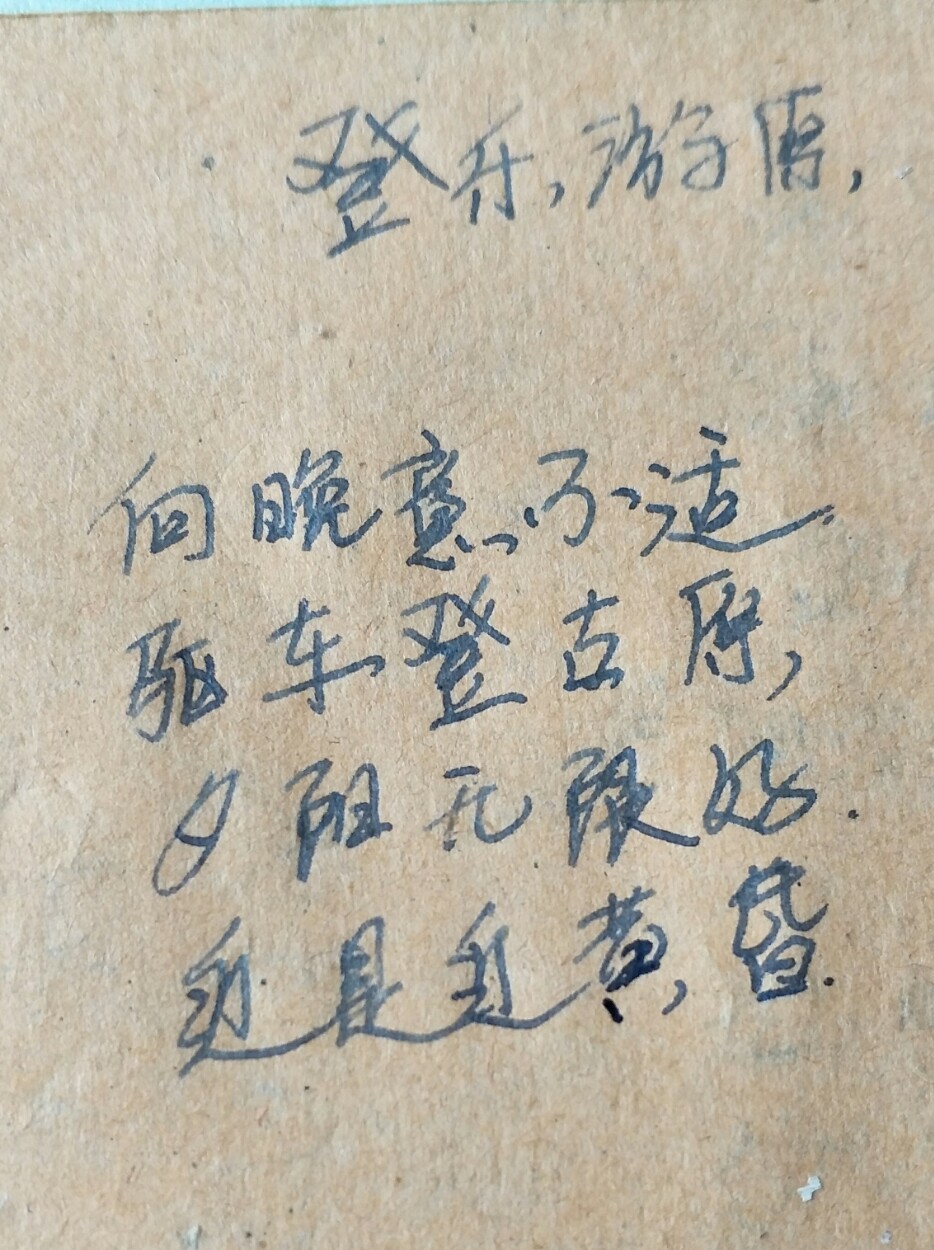 登乐游原,
向晚意不适
驱车登古原,
夕阳无限好.
近是近黄昏.